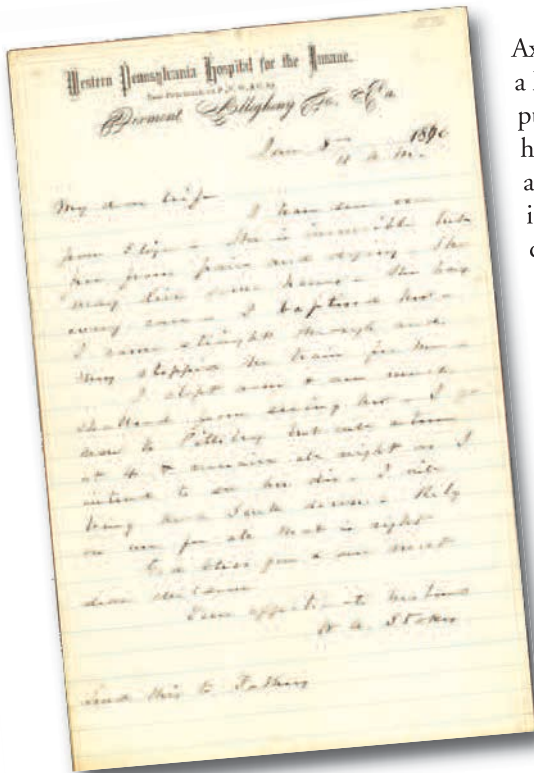 Western Pennsylvania Hospital for the Insane.
Dixmont Allegheny Co. Pa.
Jan 186
A. M.
My dear wife
I have seen our
poor Eliza - She is insensible but
free from pain and dying - She
may live some hours - She has
every care - I baptised her -
I came straight through and
they stopped the train for me -
I slept none & am much
shattered from seeing her - I go
now to Pittsburg but will return
at 4 & remain all night as I
intend to see her die - I will
bring her down - Rely
on me for all that is right
God bless you & our most
dear children
Your affectionate husband
W. A. Stokes
Send this to Father
Ax
a
pu
h
a
i